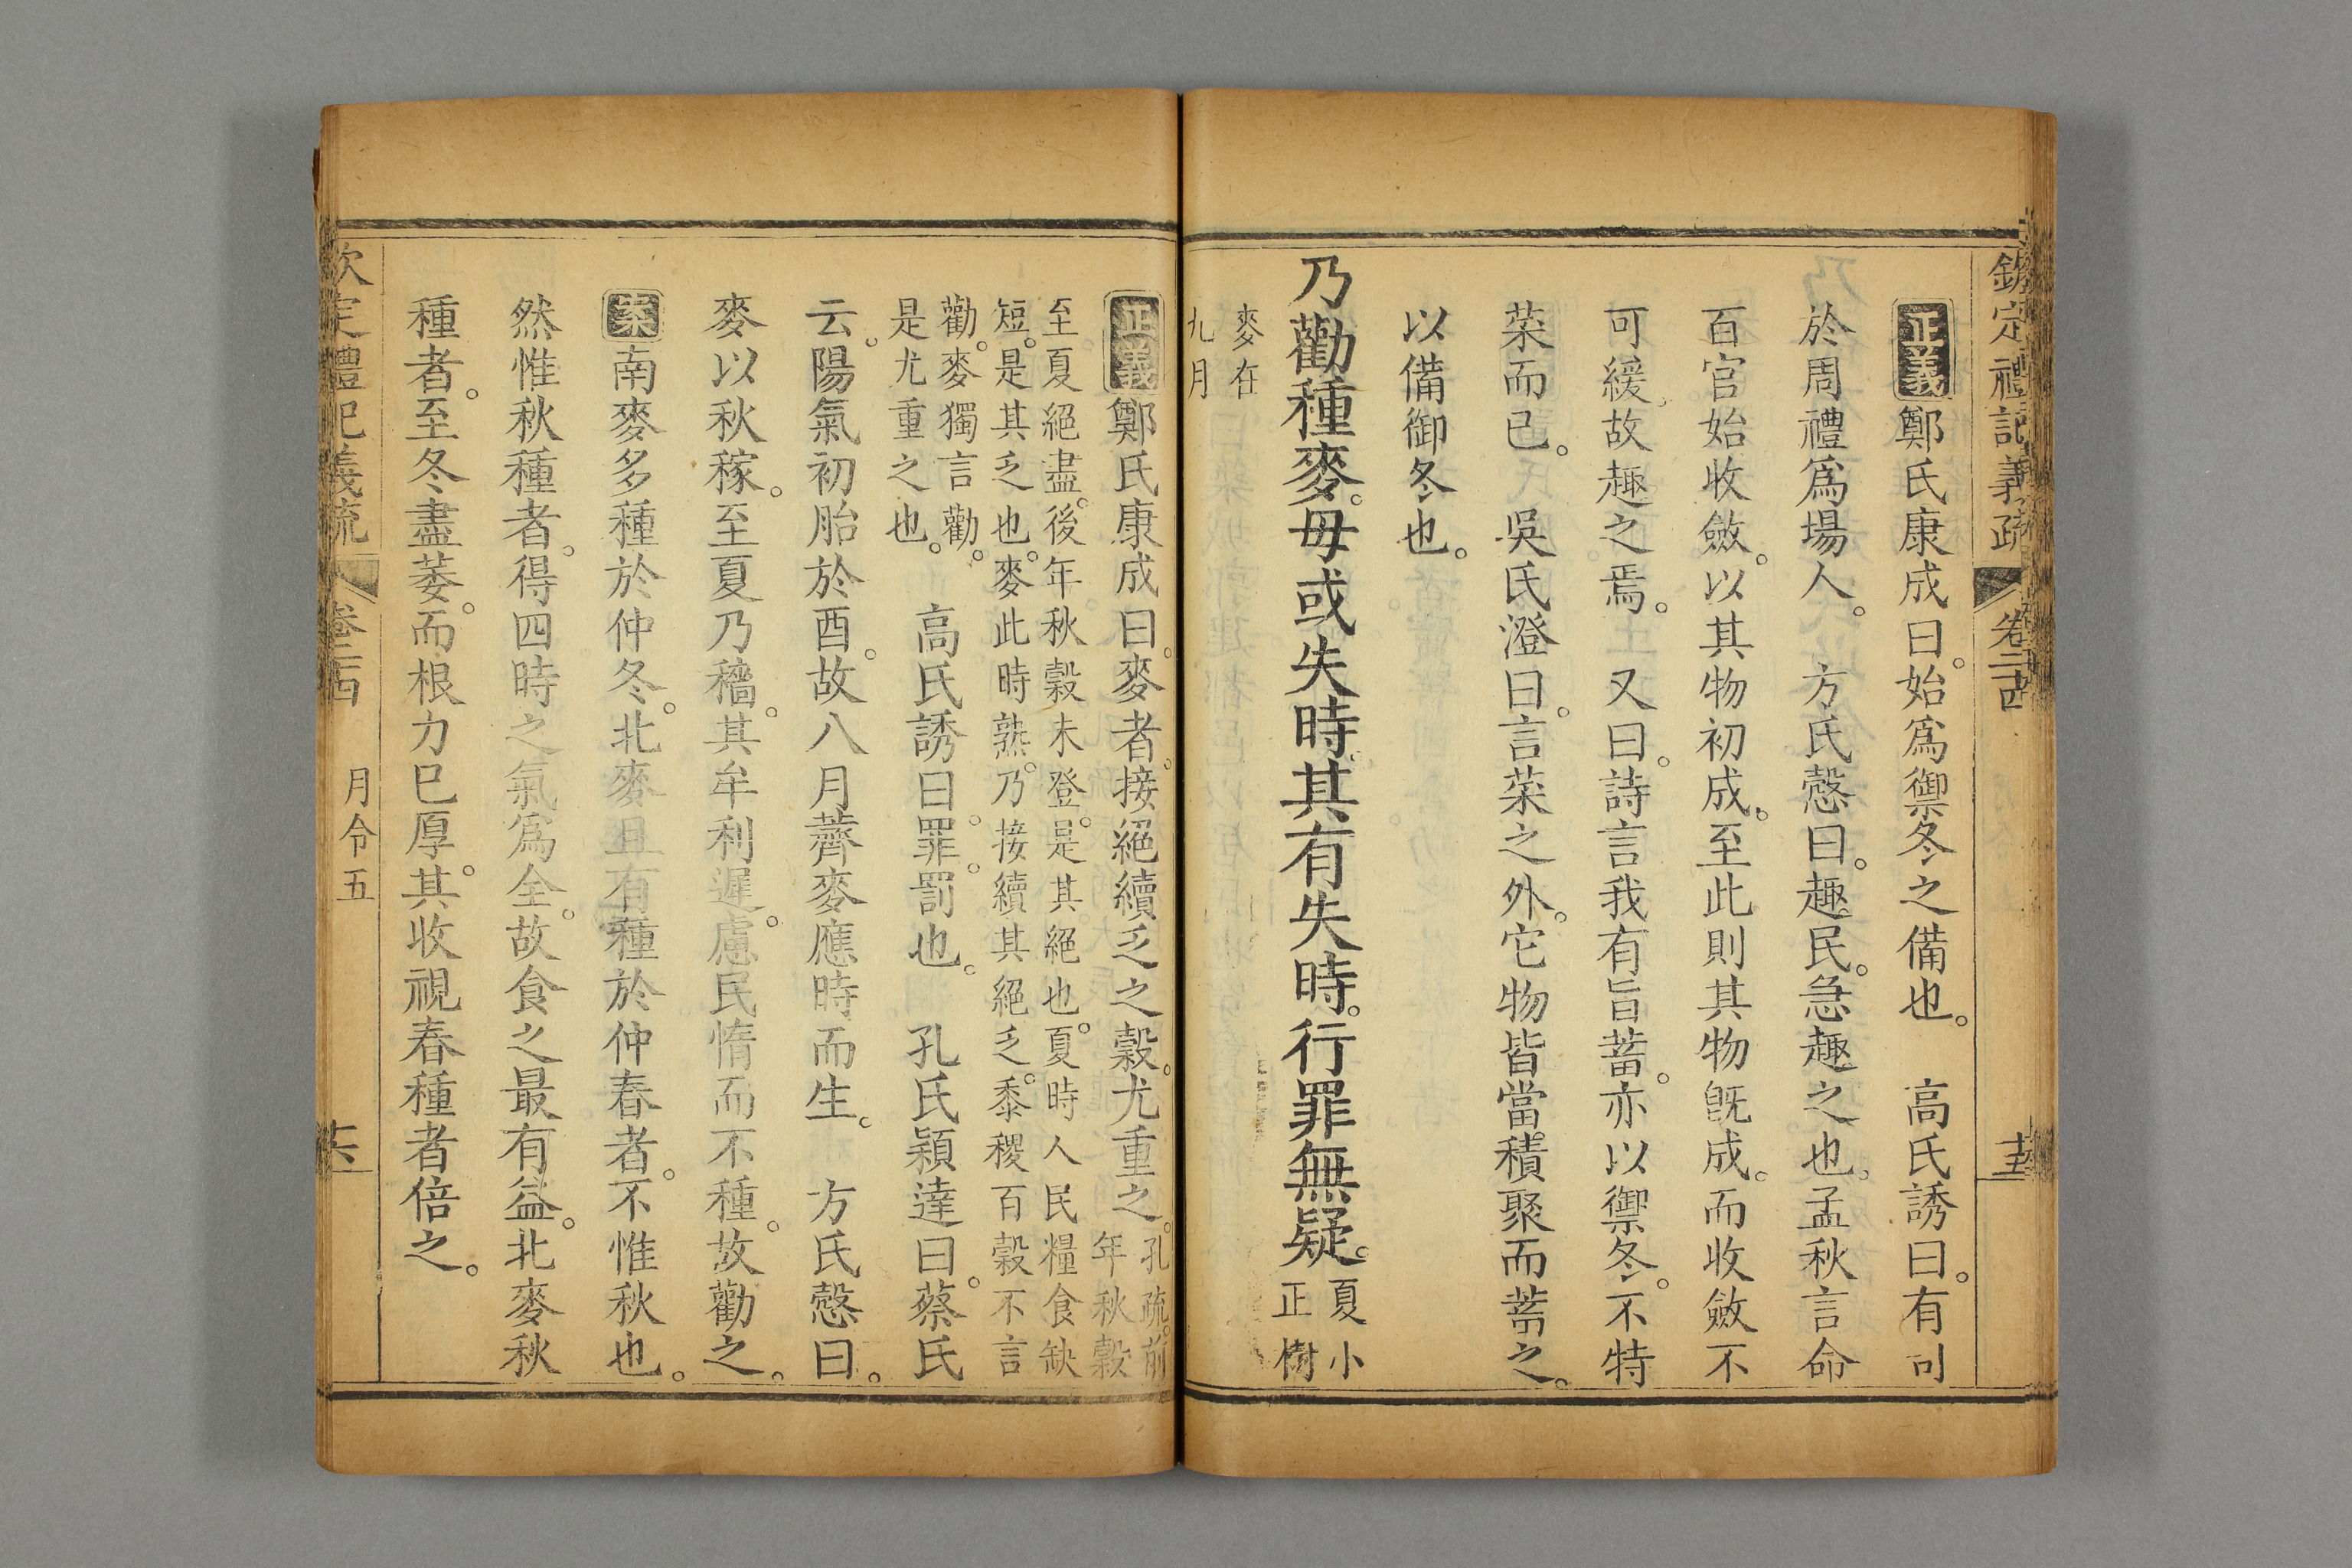 欽定禮記義疏 卷二十四 十五
正義鄭氏康成曰。始爲禦冬之備也。 高氏誘曰。有司
於周禮爲場人。 方氏慤曰。趣民。急趣之也。孟秋言命
百官始收斂。以其物初成。至此則其物旣成。而收斂不
可緩。故趣之焉。 又曰。詩言我有旨蓄。亦以禦冬。不特
菜而已。 吳氏澄曰。言菜之外。它物皆當積聚而蓄之。
以備御冬也。
乃勸種麥。毋或失時。其有失時。行罪無疑。夏小
正樹
麥在
九月
正義鄭氏康成曰。麥者。接絕續乏之穀。尤重之。孔疏。前
年秋穀
至夏絕盡。後年秋穀未登。是其絕也。夏時人民糧食缺
短。是其乏也。麥此時熟。乃接續其絕乏。黍稷百穀不言
勸。麥獨言勸。
是尤重之也。
高氏誘曰。罪。罰也。 孔氏穎達曰。蔡氏
云。陽氣初胎於酉。故八月薺麥應時而生。 方氏慤曰。
麥以秋稼。至夏乃穡。其牟利遲。慮民惰而不種。故勸之。
案南麥多種於仲冬。北麥且有種於仲春者。不惟秋也。
然惟秋種者。得四時之氣爲全。故食之最有益。北麥秋
種者。至冬盡萎。而根力已厚。其收視春種者倍之。
欽定禮記義疏 卷二十四 月令五 十六